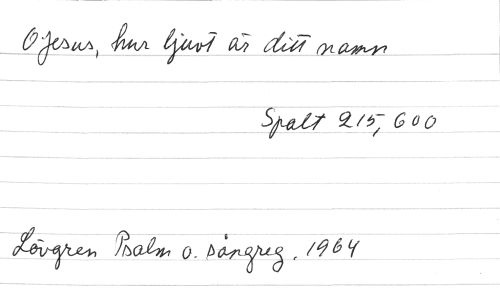 O Jesus, hur ljuvt är ditt namn
Spalt 215, 600
Lövgren Psalm o. sångreg. 1964